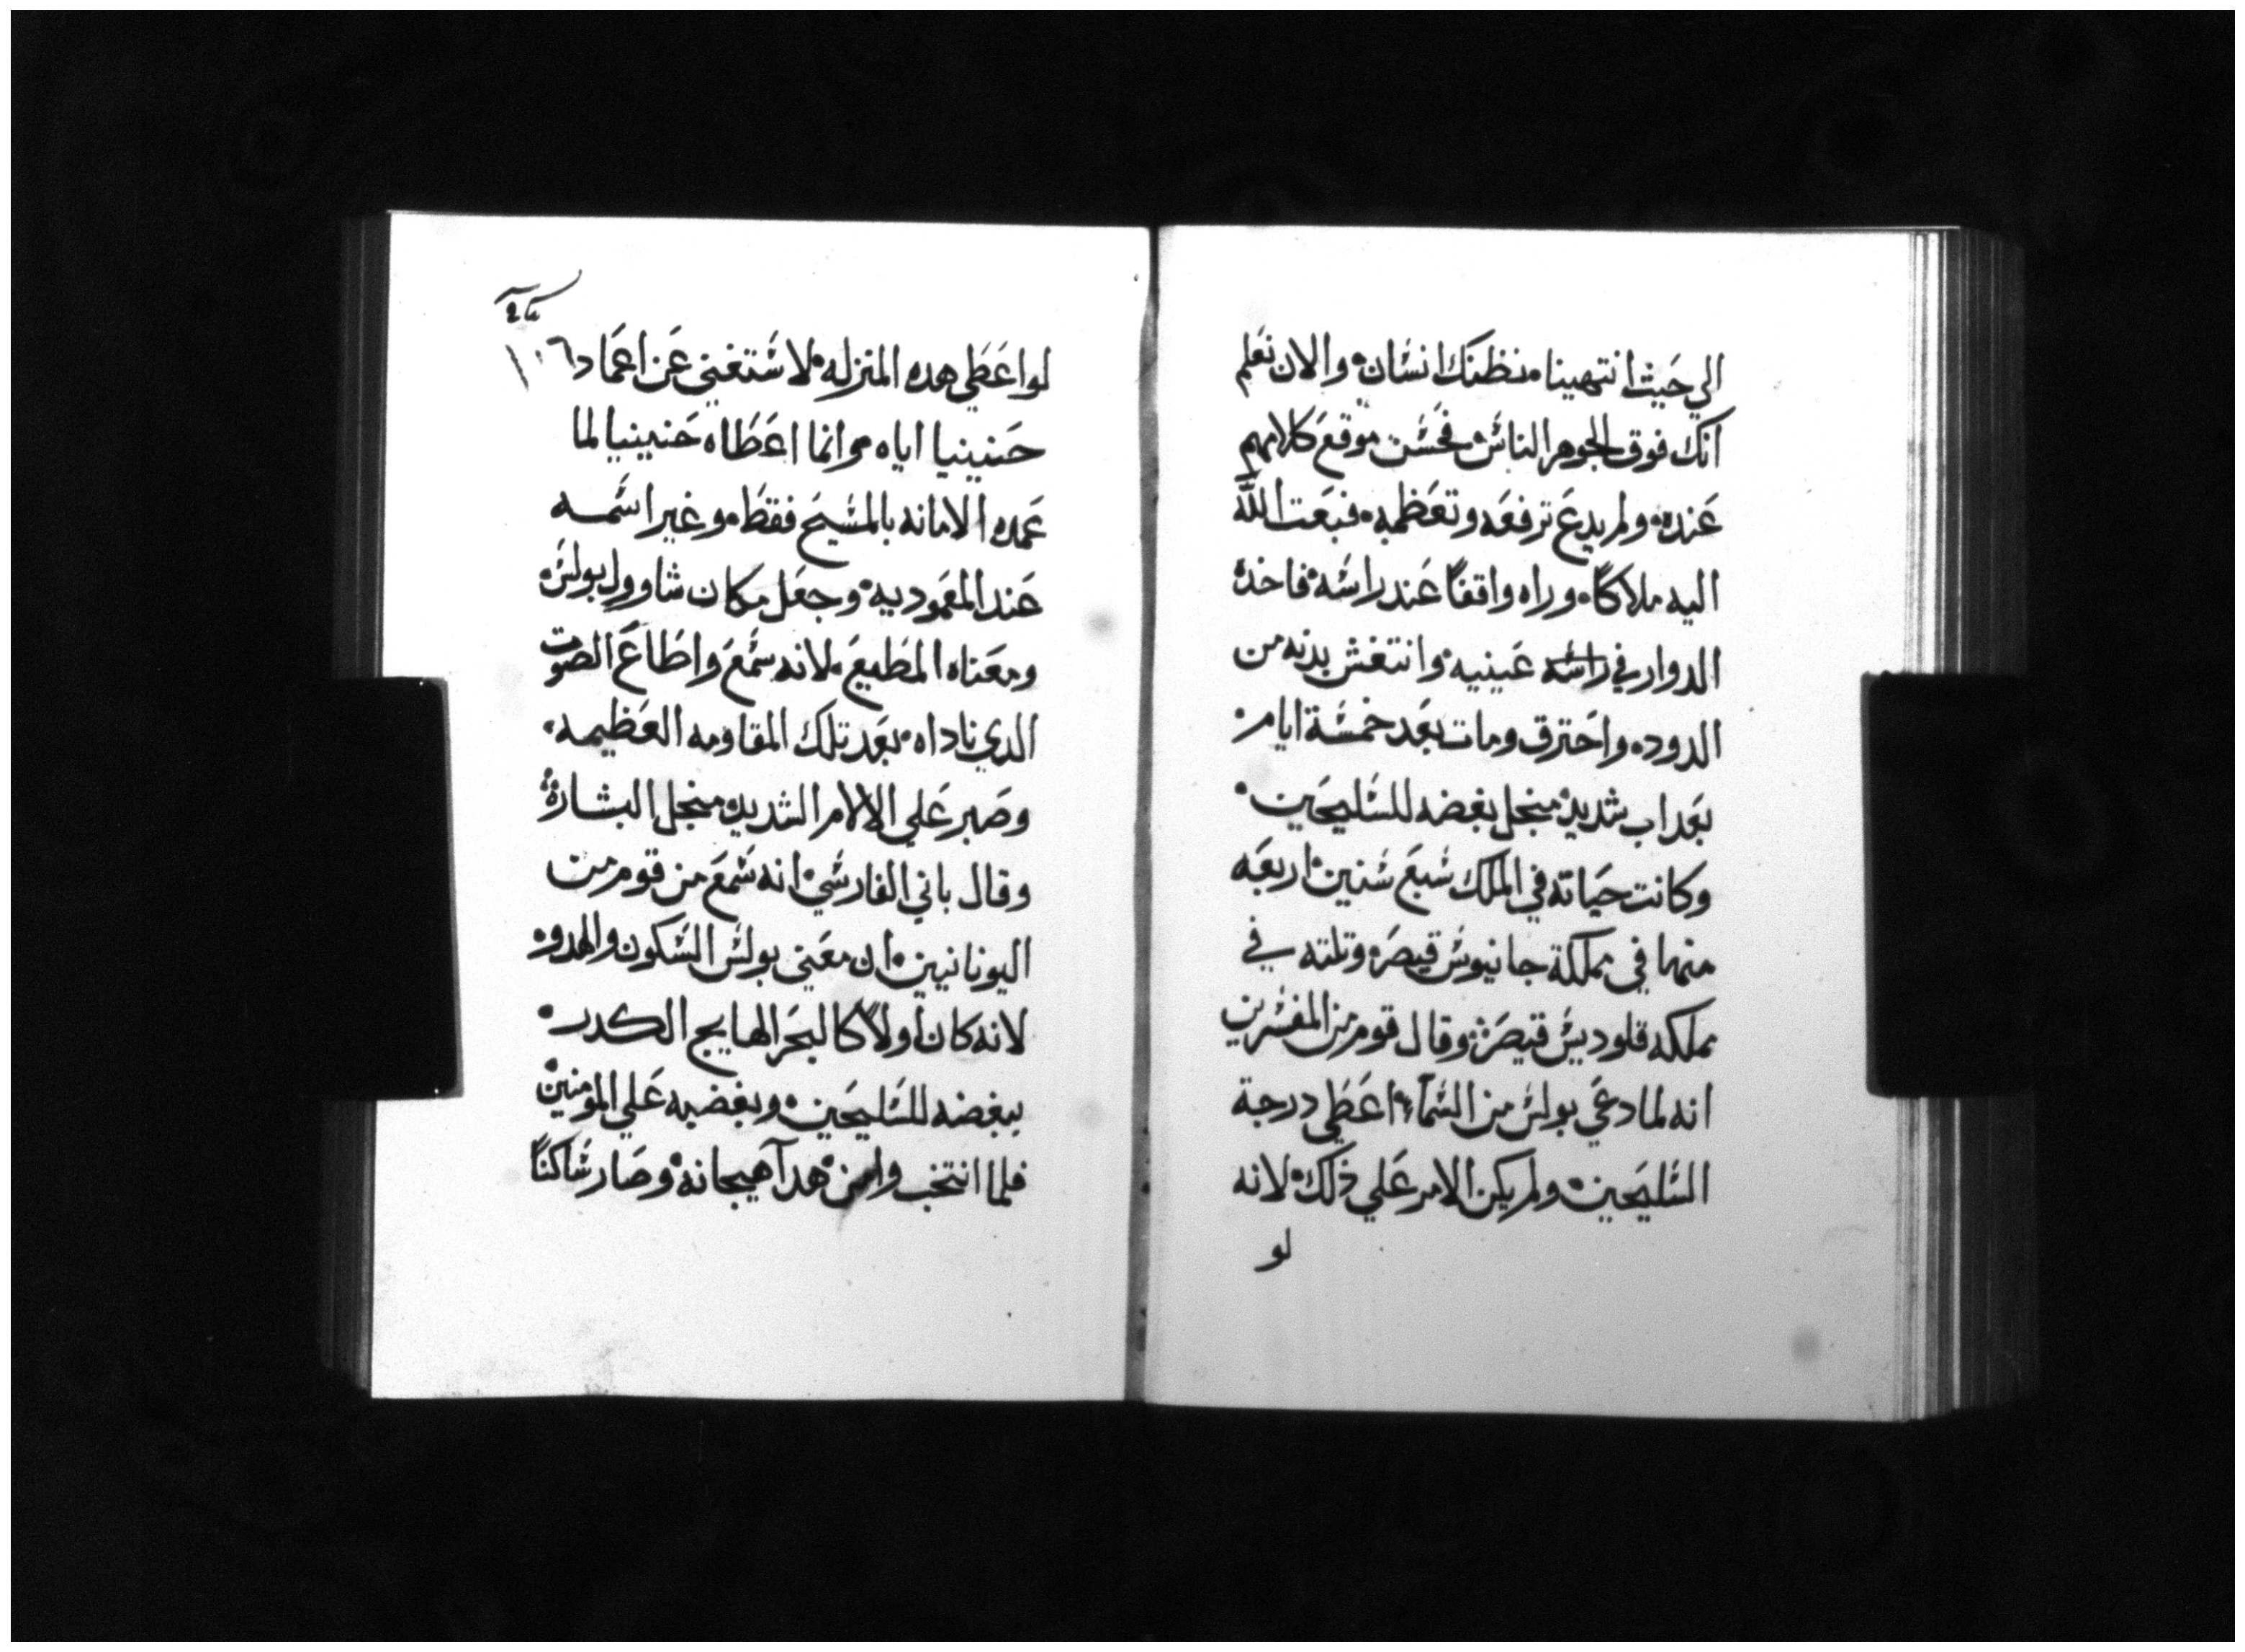 الي حيث انتهينا. نظنك انسان. والان نعلم
انك فوق الجوهر الناس. فحسن موقع كلامهم
عنده. ولم يدع ترفعه وتعظمه. فبعت الله
اليه ملاكًا. وراه واقفًا عند راسه. فاخده
الدوار في راسه عينيه. وانتغش بدنه من
الدوده. واحترق ومات بعد خمسة ايام.
بعداب شديد. منجل بغضه للسليحين.
وكانت حياته في الملك سبع سنين. اربعه
منها في مملكة جانيوس قيصر. وتلته في
مملكه قلوديس قيصر. وقال قوم من المفسرين
انه لما دعي بولس من السمآء. اعطي درجة
السليحين. ولم يكن الامر علي ذلك. لانه
لو
١٠٦
لو اعطي هده المنزله. لاستغني عن اعماد
حنينيا اياه. وانما اعطاه حنينيا لما
عمده الامانه بالمسيح فقط. وغير اسمه
عند المعموديه. وجعل مكان شاوول بولس.
ومعناه المطيع. لانه سمع واطاع الصوت
الدي ناداه. بعد تلك المقاومه العظيمه.
وصبر علي الالام الشديده منجل البشارة.
وقال باني الفارسي. انه سمع من قوم من
اليونانيين. ان معني بولس السكون والهدو.
لانه كان اولاً كالبحر الهايج الكدر.
ببغضه للسليحين. وبغضبه علي المومنين.
فلما انتخب وامن. هدآ هيجانه. وصار ساكنًا